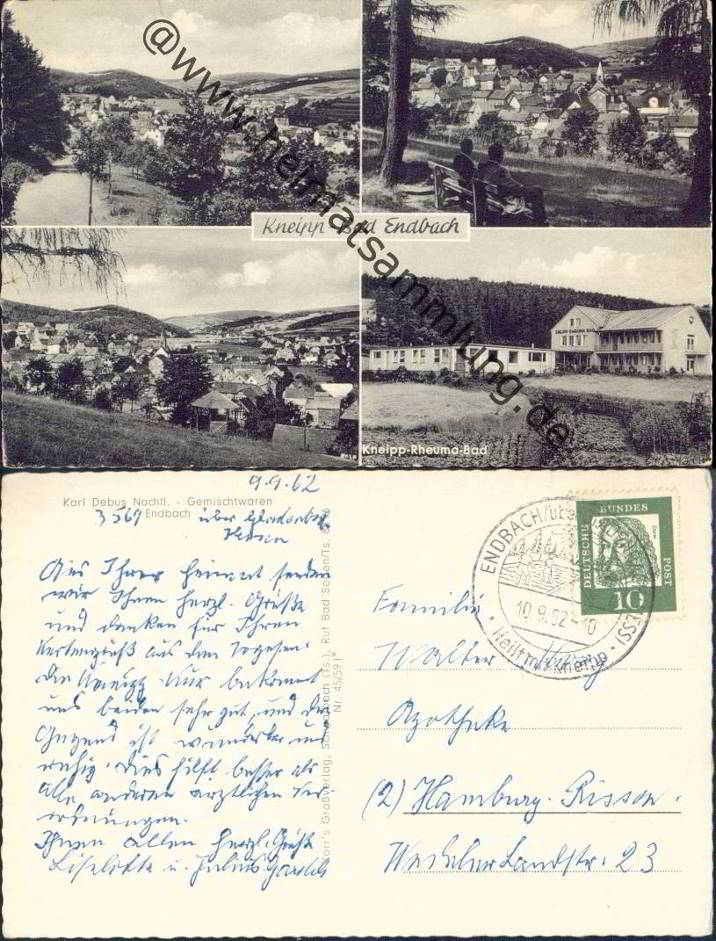 @www.heimatsammlung.de
Kneipp Bad Endbach
KNEIPP-RHEUMA-BAD
Kneipp-Rheuma-Bad
9.9.62
Karl Debus Nachfl. - Gemischtwaren
3569 Endbach über
Hessen
Aus Ihrer Heimat senden
wir Ihnen herzl. Grüße
und danken für Ihren
Kartengruß aus den Vogesen.
Die Kneipp Kur bekommt
uns beiden sehr gut, und die
Gegend ist wunderbar und
ruhig. Dies hilft besser als
alle anderen ärztlichen Ver-
ordnungen.
Ihnen allen herzl. Grüße
Liselotte u. Julius
Ruf Bad Soden/Ts.
Nr. 45/591
ENDBACH
10.9.62-10
Heilt mit Kneipp
DEUTSCHE BUNDESPOST
10
Familie
Walter
Apotheke
(2) Hamburg-Rissen.
Wedeler Landstr. 23